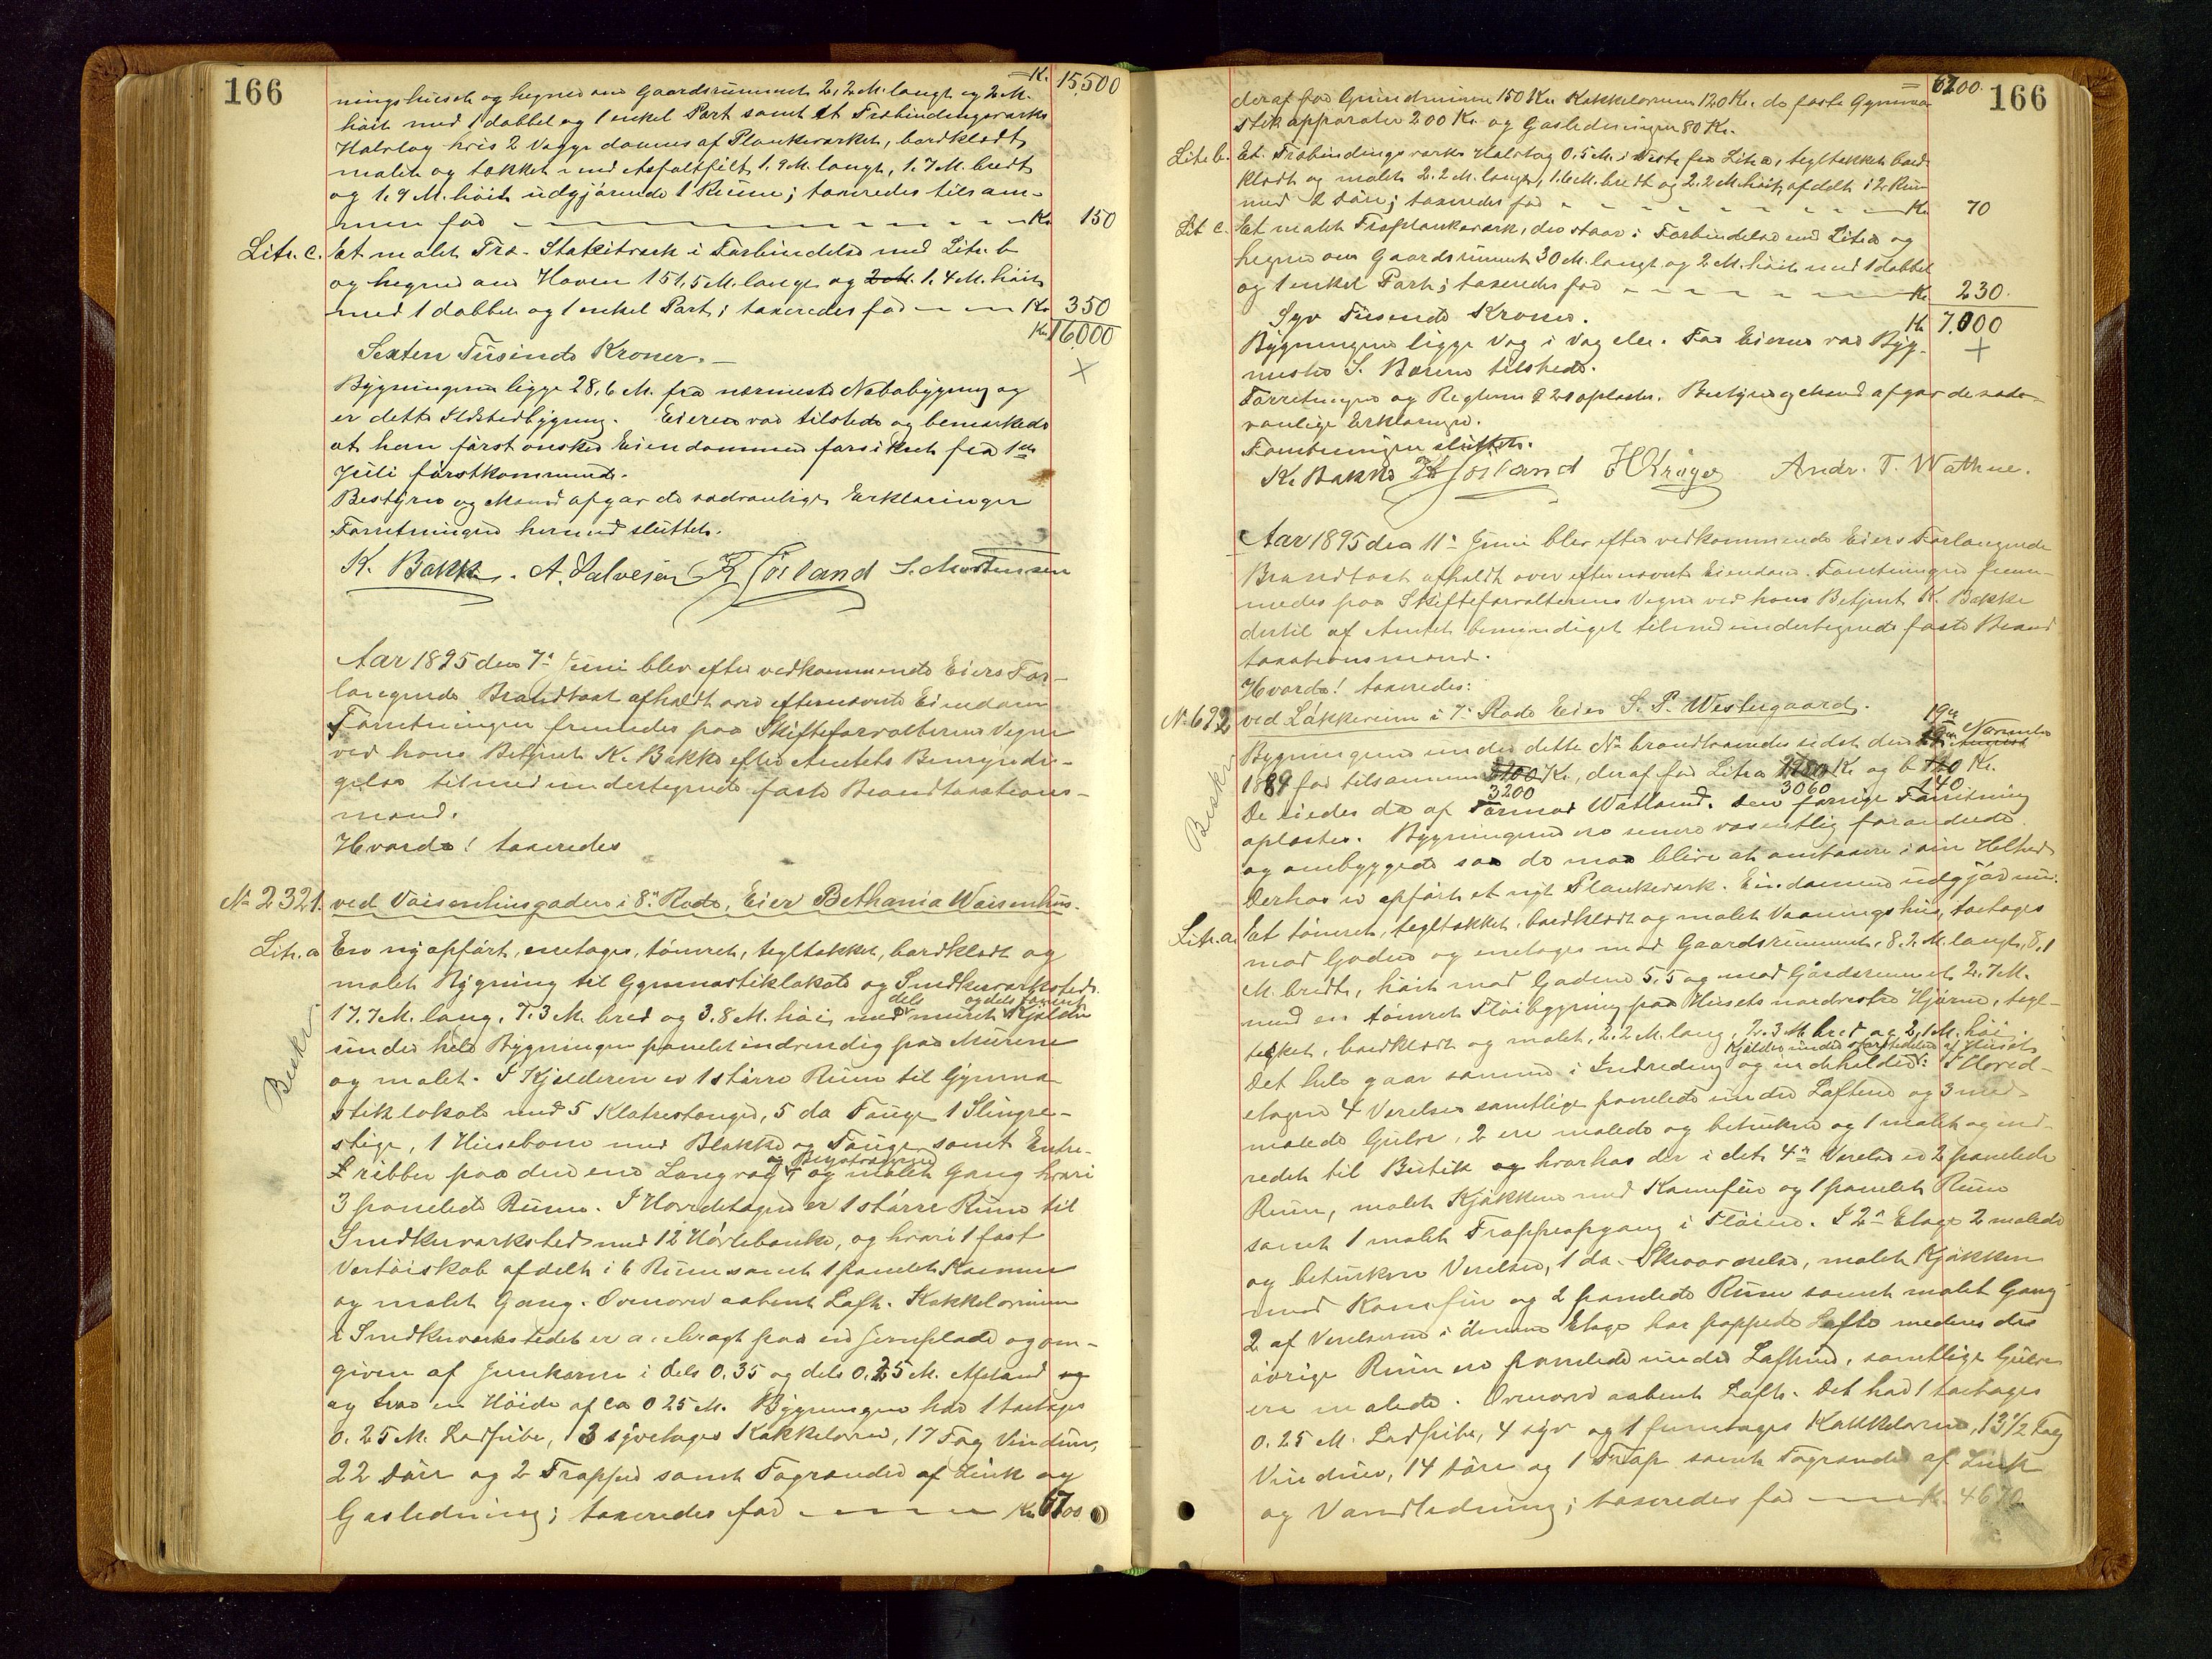 166
= K. 15,500
ningshuset og hegner om Gaardsrummet 22 M. langt og 2 M.
höit med 1 dobbel og 1 enkel Port samt et Træbindingsværks
Halvtag hvis 2 Vægge dannes af Plankeværket, bordklædt,
malet og tækket med Asfaltfilt, 1.9 M. langt, 1.7 M. bredt
og 1.9 M. höit udgjörende 1 Rum; taxeredes tilsam-
men for Kr. 150
Litr. c. Et malet Træ-Stakitværk i Forbindelse med Litr. b
og hegner om Haven 151,5 M. langt og 2 M. 1.4 M. höit
med 1 dobbel og 1 enkel Port; taxeredes for Kr. 350
Kr. 16000
Sexten Tusinde Kroner.
Bygningerne ligge 28,6 M. fra nærmeste Nabobygning og
er dette Ildstedbygning. Eieren var tilstede og bemærkede
at han först önsker Eiendommen forsikret fra 1ste
Juli förstkommende.
Bestyrer og Mænd afgav de sædvanlige Erklæringer
Forretningen hermed sluttet.
K. Bakke. A. Salvesen Hösland S. Mortensen
Aar 1895 den 7de Juni blev efter vedkommende Eiers For-
langende Brandtaxt afholdt over efternævnte Eiendom
Forretningen fremmedes paa Skifteforvalterens Vegne
ved hans Betjent K. Bakke efter Amtets Bemyndi-
gelse tilmed undertegnede faste Brandtaxations-
mænd.
Hvorda! taxeredes
No 2321. ved Vaisenhusgaden i 8de Rode, Eier Bethania Waisenhus.
Litr. a En nyopfört, enetages, tömret, tegltækket, bordklædt og
malet Bygning til Gymnastiklokale og Snedkerværksted.
dels og dels
17.7 M. lang, 7.3 M. bred og 3.8 M. höi, med muret Kjælder
under hele Bygningen panelet indvendig paa Murene
og malet. I Kjælderen er 1 större Rum til Gymna-
stiklokale med 5 Klatrestænger, 5 do Touge 1 Slingre-
stige, 1 Husebom med Blokke og Touge samt
ribber paa den ene Langvæg og malet Gang hvori
3 panelede Rum. I Hovedetagen er 1 större Rum til
Snedkerværksted med 12 Hövlebænke, og hvori 1 fast
Værtöiskab afdelt i 6 Rum samt 1 panelet Kammer
og malet Gang. Ovenover aabent Loft. Kakkelovnene
i Snedkerværkstedet er anbragt paa en Jernplade og om-
given af Jernkarm i dels 0.35 og dels 0.25 M. Afstand og
og hvor en Höide af ca 0.25 M. Bygningen har 1 toetages
0.25 M. Ladpibe, 3 syvetages Kakkelovne, 17 Fag Vinduer,
22 Döre og 2 Trapper samt Tagrender af Zink og
Gasledning; taxeredes for Kr. 6700
Beskr.
166
= 6700.
deraf for Grundmuren 150 Kr. Kakkelovnene 120 Kr. do faste Gymna-
stikapparater 200 Kr. og Gasledningen 80 Kr.
Litr. b. Et Træbindingsværks Halvtag 0.5 M. i Vest fra Litr. a, tegltækket bord-
klædt og malet 2.2 M. langt, 1.6 M. bredt og 2.2 M. höit, afdelt i 2 Rum
med 2 Döre; taxeredes for Kr. 70
Lit c. Et malet Træplankeværk, der staar i Forbindelse med Litr. a og
hegner om Gaardsrummet 30 M. langt og 2 M. höit med 1 dobbel
og 1 enkel Port; taxeredes for Kr. 230.
Syv Tusende Kroner. Kr. 7.000
Bygningerne ligge Væg i Væg eller. For Eieren var Byg-
mester S. tilstede.
Forretningen og Reglerne § 21 oplæstes. Bestyrer og Mænd afgav de sæd-
vanlige Erklæringer.
Forretningen sluttet.
K. Bakke Hösland H Kröger Andr. T. Wathne.
Aar 1895 den 11te Juni blev efter vedkommende Eiers Forlangende
Brandtaxt afholdt over efternævnte Eiendom. Forretningen frem-
medes paa Skifteforvalterens Vegne ved hans Betjent K. Bakke
dertil af Amtet bemyndiget tilmed undertegnede faste Brand-
taxationsmænd.
Hvorda! taxeredes:
No 692 ved Lökkeveien i 7de Rode Eier S. P. Westergaard.
19de November
Bygningerne under dette No brandtaxeredes sidst den August
1889 for tilsammen Kr., deraf for Litr. a Kr. og b Kr.
3200 3060 140
De eiedes da af Watland. Den forrige Forretning
oplæstes. Bygningerne ere senere væsentlig forandrede
og ombyggede saa de maa blive at omtaxere i sin Helhed
Derhos er opfört et nyt Plankeværk. Eiendommen udgjör nu:
Litr. a. Et tömret, tegltækket, bordklædt og malet Vaaningshus, toetages
mod Gaden og enetages mod Gaardsrummet, 8.2 M. langt, 8.1
M. bredt, höit mod Gaden 5,5 og mod Gaardsrummet 2.7 M.
med en tömret Flöibygning paa Husets nordvestre Hjörne, tegl-
tækket, bordklædt og malet, 2.2 M. lang, 2.3 M. bred og 2,1 M. höi.
Kjælder under störstedelen af Huset.
Det hele gaar sammen i Indredning og indeholder: I Hoved-
etagen 4 Værelser samtlige panelede under Loftene og 3 med
malede Gulve, 2 ere malede og betrukne og 1 malet og ind-
redet til Butik og hvorhos der i det 4de Værelse er 2 panelede
Rum, malet Kjökken med Komfur og 1 panelet Rum
samt 1 malet Trappeopgang i Flöien. I 2den Etage 2 malede
og betrukne Værelser, 1 do. Skraaværelse, malet Kjökken
med Komfur og 2 panelede Rum samt malet Gang
2 af Værelserne i denne Etage har pappede Lofte medens de
övrige Rum ere panelede under Loftene, samtlige Gulve
ere malede. Ovenover aabent Loft. Det har 1 toetages
0.25 M. Ladpibe, 4 syv og 1 femetages Kakkelovne, 13 1/2 Fag
Vinduer, 14 Döre og 1 Trap. samt Tagrender af Zink
og Vandledning; taxeredes for K. 4670
Beskr.